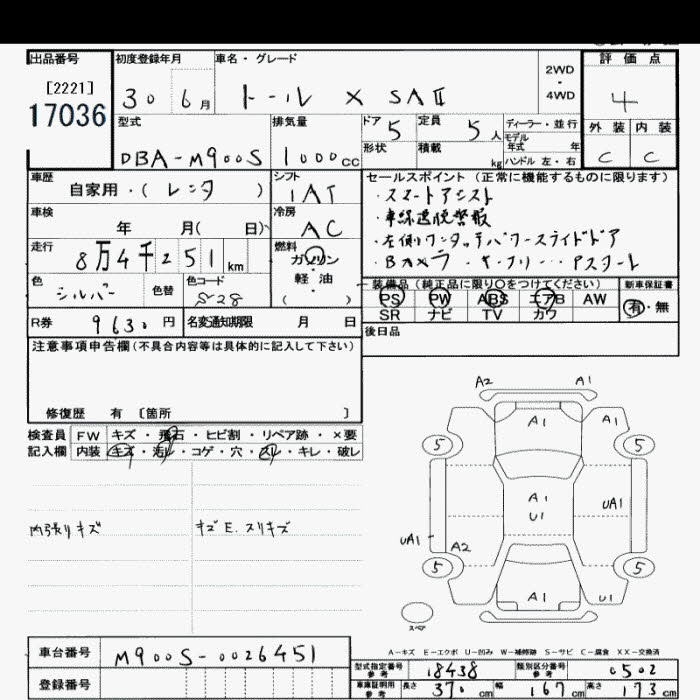 出品番号 初度登録年月 車名・グレード 2WD・4WD 評価点
[2221] 17036 30 6月 トール X SAⅡ 4
型式 排気量 ドア 5 定員 5人 ディーラー・並行 外装 内装
DBA-M900S 1000cc 形状 積載 kg モデル年式 年 ハンドル 左・右 C C
車歴 シフト セールスポイント (正常に機能するものに限ります)
自家用・( レンタ ) IAT ・スマートアシスト
車検 冷房 ・車線逸脱警報
年 月( 日) AC ・左側ワンタッチパワースライドドア
走行 燃料
8万4千251km ガソリン・軽油
色 色替 色コード 装備品 (純正品に限り○をつけてください) 新車保証書
シルバー S28 PS PW ABS エアB AW 有・無
R券 9630円 名変通知期限 月 日 SR ナビ TV カワ
注意事項申告欄(不具合内容等は具体的に記入して下さい) 後日品
修復歴 有 〔箇所 〕
検査員 FW キズ・飛石・ヒビ割・リペア跡・×要
記入欄 内装 キズ・汚レ・コゲ・穴・スレ・キレ・破レ
内張りキズ キズE.スリキズ
A2 A1
A1 A1
5 5
A1 U1 UA1
UA1 A2
5 5
A1 U1
スペア
A-キズ E-エクボ U-凹み W-補修跡 S-サビ C-腐食 XX-交換済
車台番号 M900S-0026451 型式指定番号 参考 18438 類別区分番号 参考 0502
登録番号 車庫証明用 参考 長さ 370cm 幅 167cm 高さ 173cm